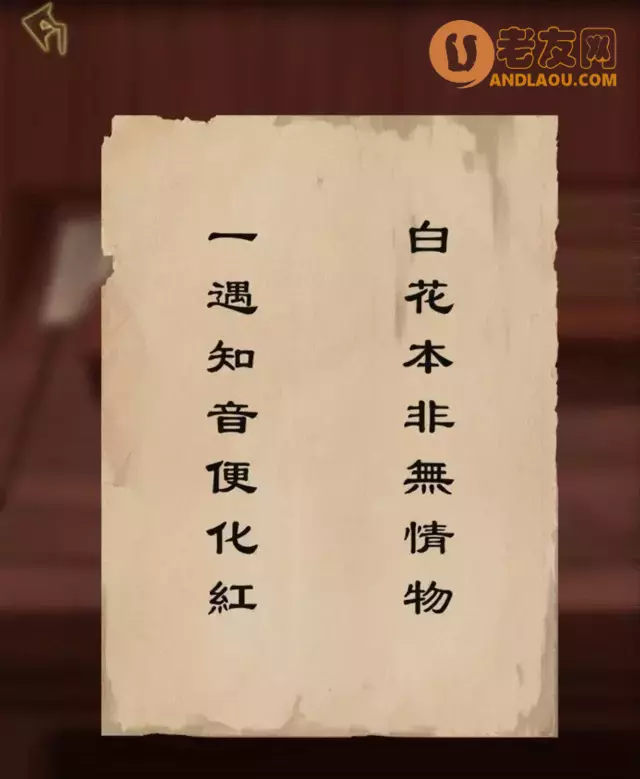 老友网
ANDLAOU.COM
白花本非無情物
一遇知音便化紅